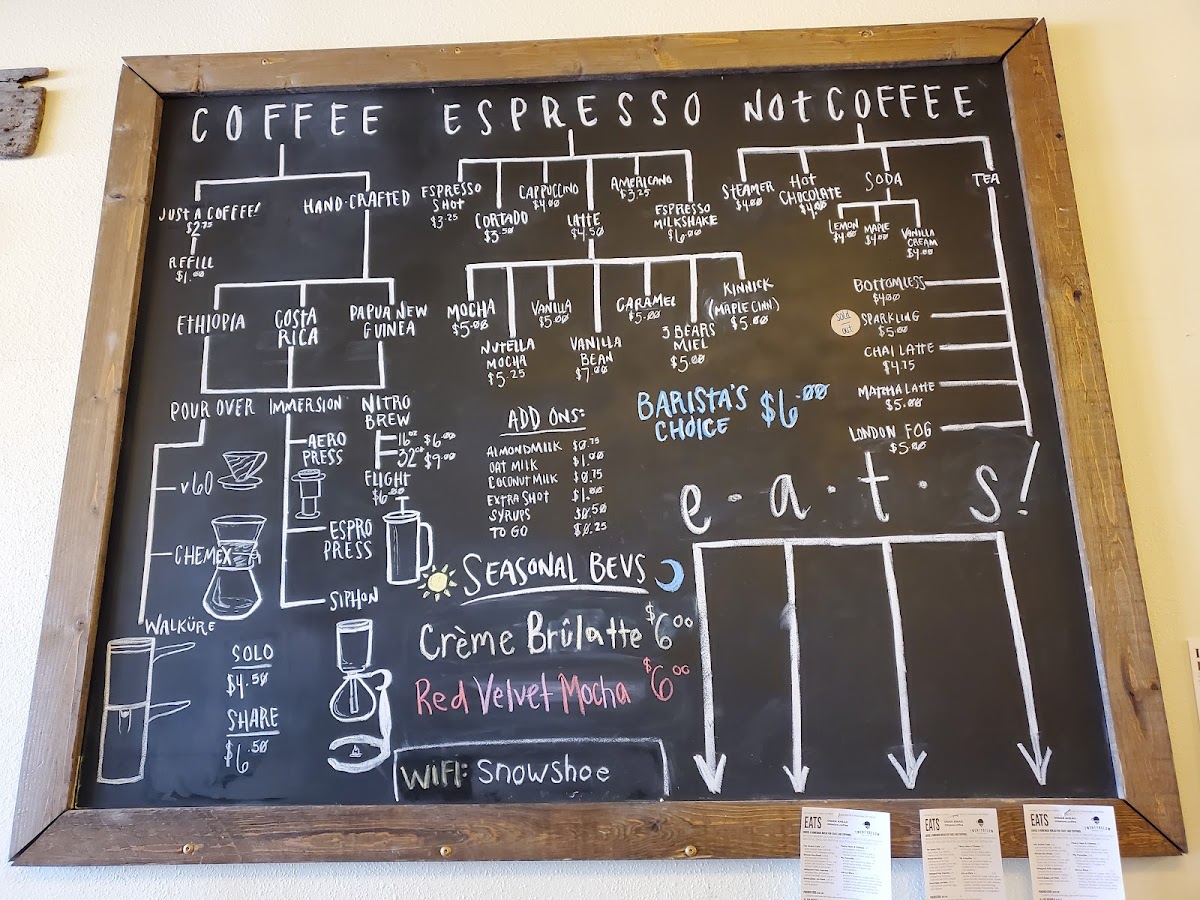 COFFEE
JUST A COFFEE!
$2.75
REFILL
$1.00
HAND-CRAFTED
ETHIOPIA
COSTA
RICA
PAPUA NEW
GUINEA
POUR OVER
V60
CHEMEX
WALKÜRE
IMMERSION
AERO
PRESS
ESPRO
PRESS
SIPHON
NITRO
BREW
16oz $6.00
32oz $9.00
FLIGHT
$6.00
SOLO
$4.50
SHARE
$6.50
ESPRESSO
ESPRESSO
SHOT
$3.25
CORTADO
$3.50
CAPPUCCINO
$4.00
LATTE
$4.50
AMERICANO
$3.25
ESPRESSO
MILKSHAKE
$6.00
MOCHA
$5.00
NUTELLA
MOCHA
$5.25
VANILLA
$5.00
VANILLA
BEAN
$7.00
CARAMEL
$5.00
3 BEARS
MIEL
$5.00
KINNICK
(MAPLE CINN)
$5.00
BARISTA'S
CHOICE
$6.00
ADD ONS:
ALMONDMILK $0.75
OAT MILK $1.00
COCONUT MILK $0.75
EXTRA SHOT $1.00
SYRUPS $0.50
TO GO $0.25
SEASONAL BEVS
Crème Brûlatte $6.00
Red Velvet Mocha $6.00
WIFI: Snowshoe
NOt COFFEE
STEAMER
$4.00
HOT
CHOCOLATE
$4.00
SODA
LEMON
$4.00
MAPLE
$4.00
VANILLA
CREAM
$4.00
TEA
BOTTOMLESS
$4.00
sold
out
SPARKLING
$5.00
CHAI LATTE
$4.75
MATCHA LATTE
$5.00
LONDON FOG
$5.00
e·a·t·s!
EATS
EATS
EATS